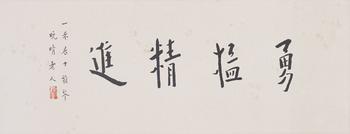 勇猛精進
居士
晚晴老人